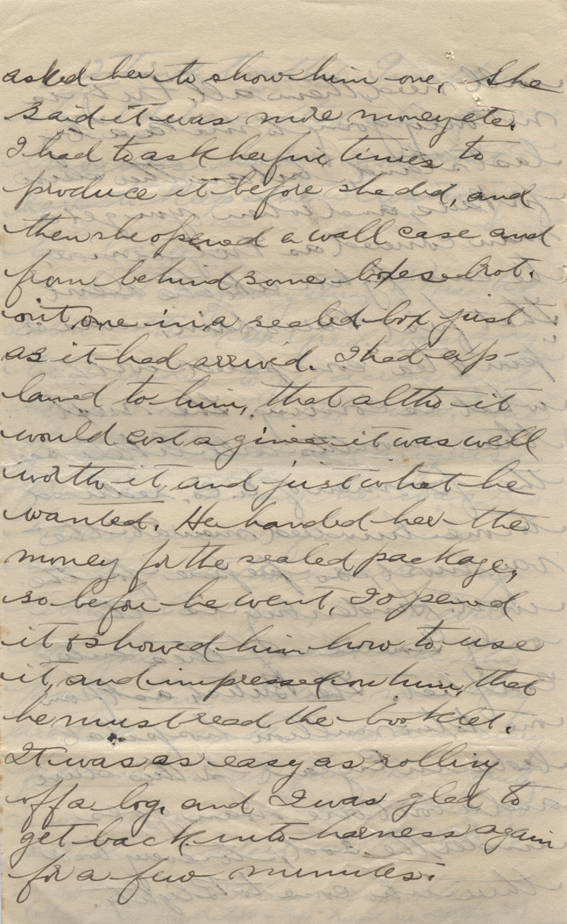 asked her to show him one, She
said it was more money etc.
I had to ask her five times to
produce it before she did, and
then she opened a wall case and
from behind some boxes brot.
out one in a sealed box just
as it had arrivd. I had exp-
lained to him, that altho it
would cost a ginea it was well
worth it and just what he
wanted. He handed her the
money for the sealed package,
so before he went, I opened
it & showed him how to use
it, and impressed on him, that
he must read the booklet.
It was as easy as rolling
off a log, and I was glad to
get back into harness again
for a few minutes.